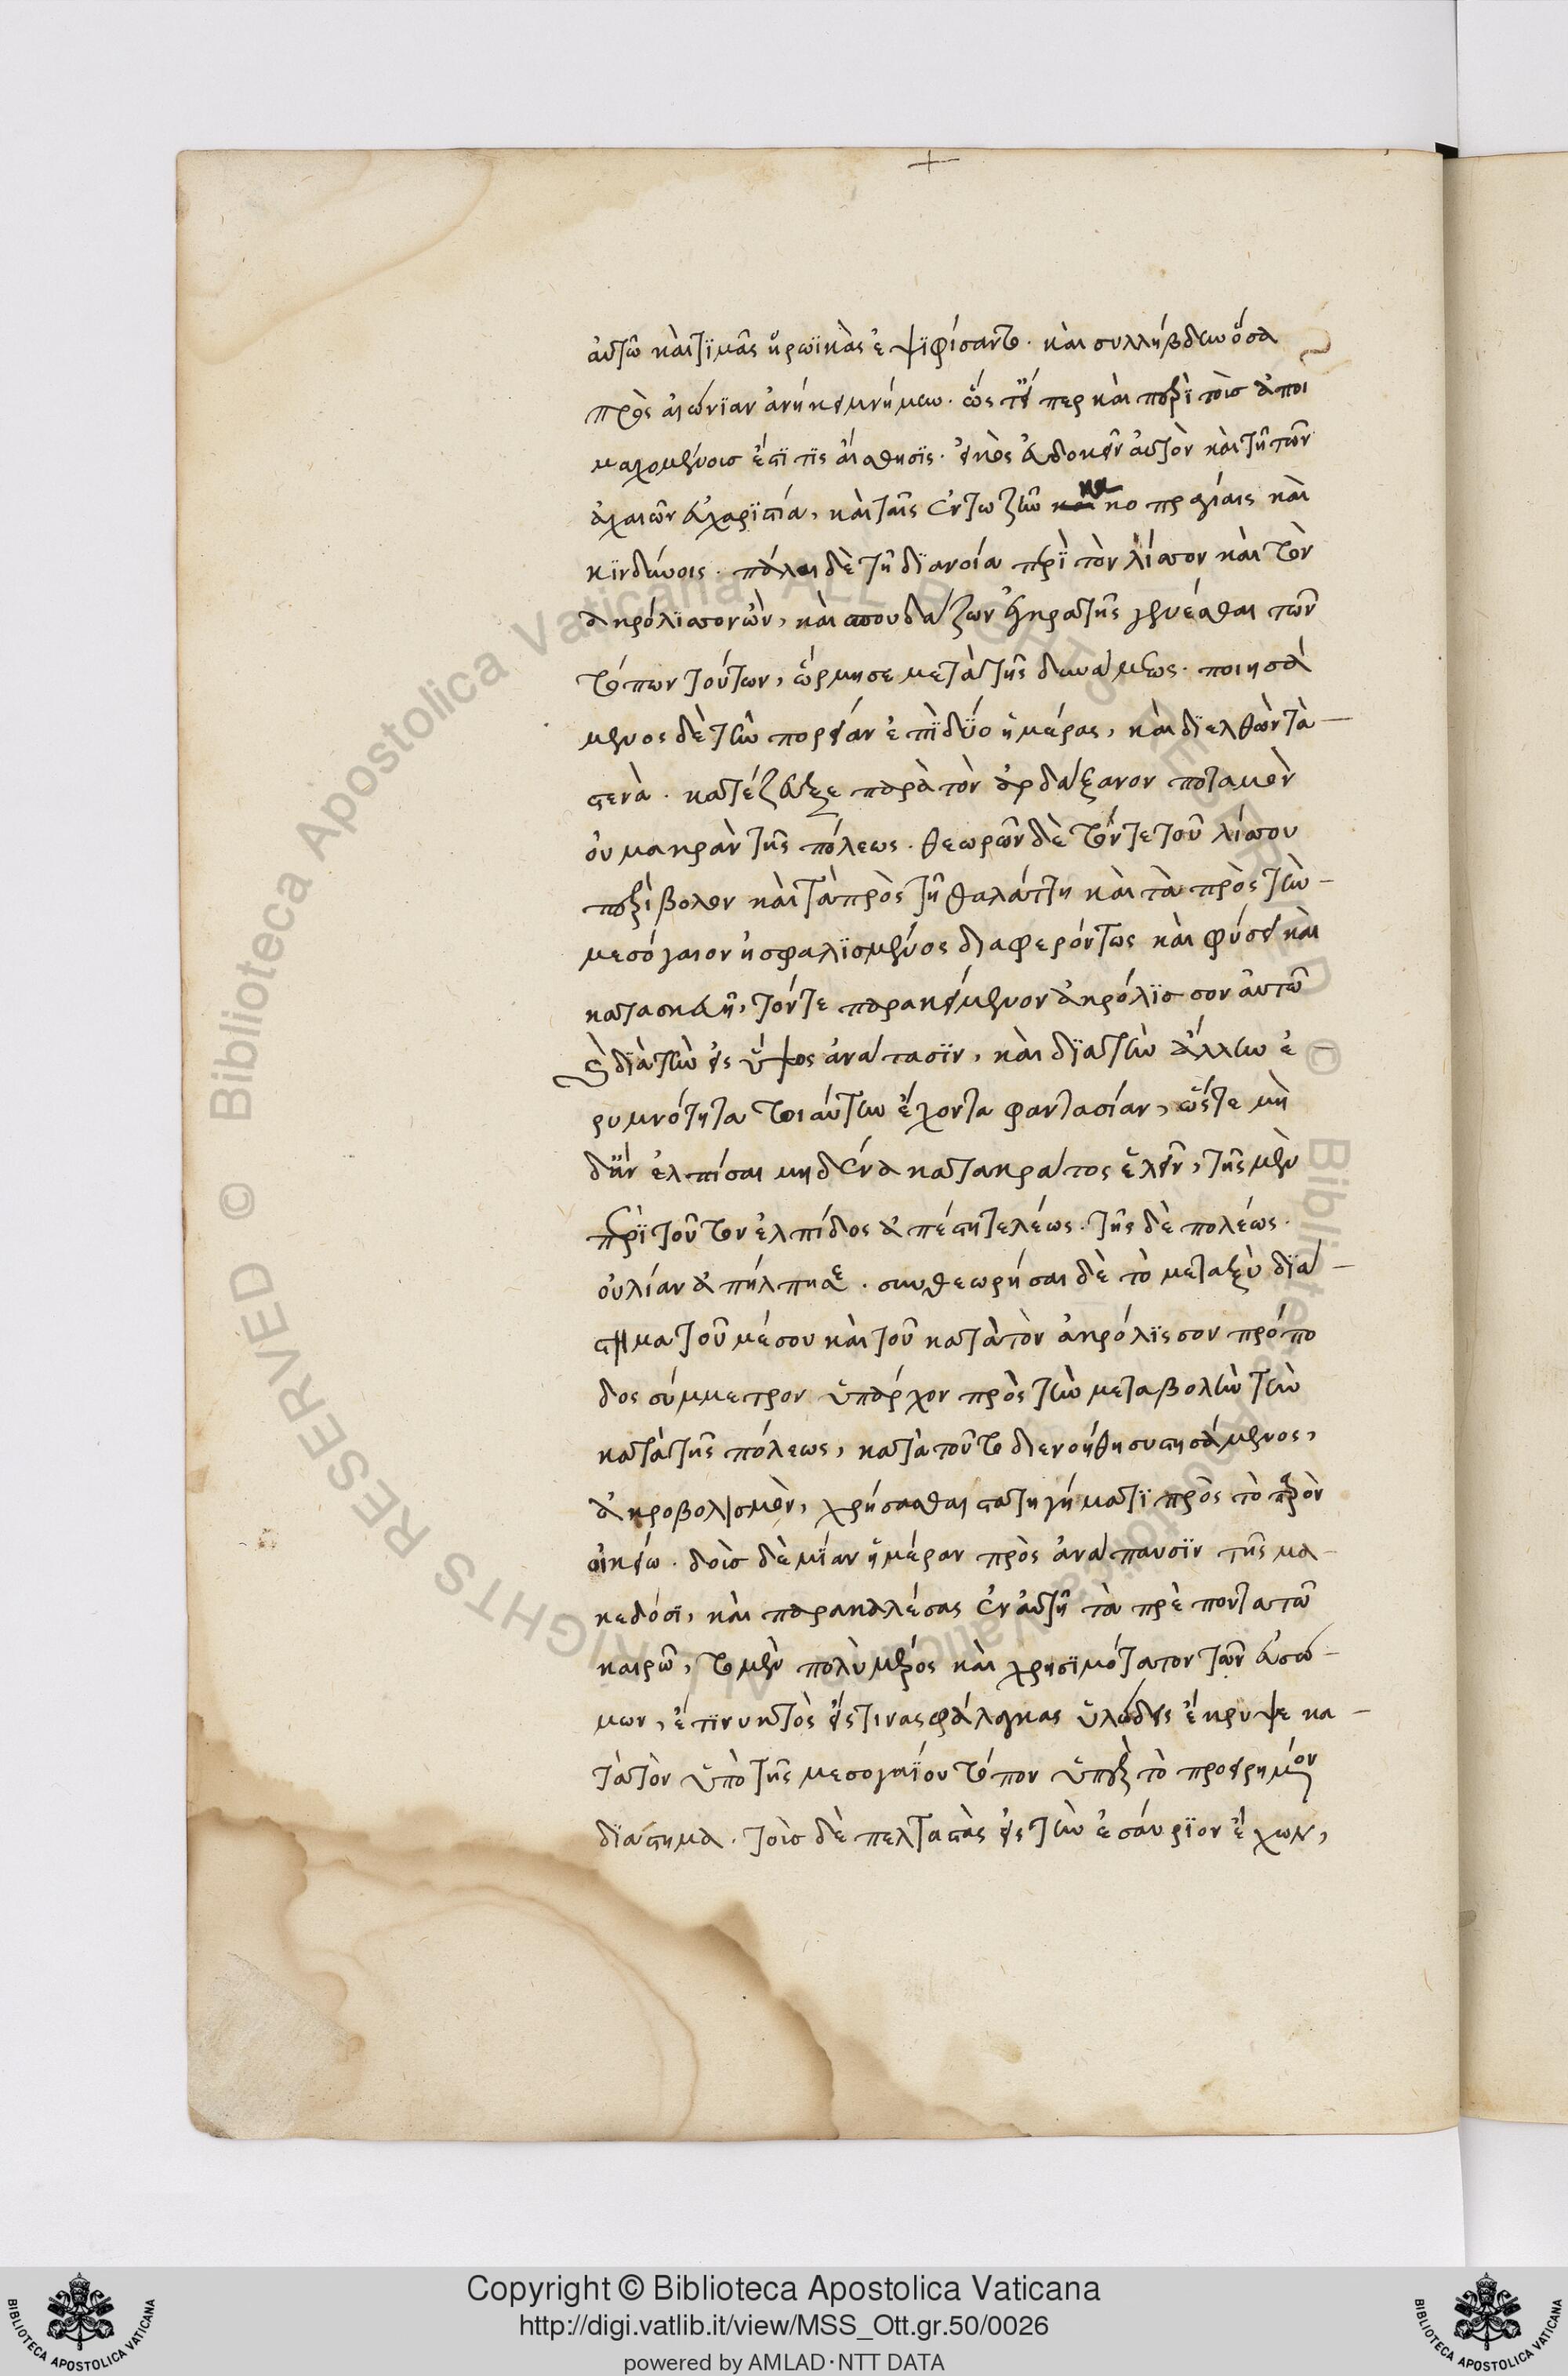 αὐτῶ καὶ τϊμὰς ἡρωϊκὰς ἐψϊφίσαντο. καὶ συλλήβδην ὅσα
πρὸς αἰώνϊαν ἀνήκει μνήμην. ὥς τ εἴ περ καὶ περὶ τοὶσ ἀποι
μαχομένοισ ἐστὶ τϊς αἴσθησϊς. εἰκὸς εὐδοκεῖν αὐτὸν καὶ τῆ τῶν
ἀχαιῶν εὐχαρϊστία, καὶ ταῖς ἐν τω ζῆν κακοπραγίαις καὶ
κϊνδύνοις. πάλαι δὲ τῆ δϊανοία περὶ τὸν λίσσον καὶ τὸν
ἀκρόλϊσσον ὢν, καὶ σπουδάζων ἐγκρατὴς γενέσθαι τῶν
τόπων τούτων, ὥρμησε μετὰ τῆς δυνάμεως. ποιησά
μενος δὲ τὴν πορείαν ἐπὶ δύο ἡμέρας, καὶ δϊελθὼν τὰ
στενὰ. κατέζευξε παρὰ τὸν ἀρδάξανον ποταμὸν
οὐ μακρὰν τῆς πόλεως. θεωρῶν δὲ τόν τε τοῦ λίσσου
περίβολον καὶ τὰ πρὸς τῆ θαλάττη καὶ τὰ πρὸς τὴν
μεσόγαιον ἠσφαλϊσμένος διαφερόντως καὶ φύσει καὶ
κατασκευῆ, τόν τε παρακείμενον ἀκρόλϊσσον αὐτῶ
καὶ διὰ τὴν εἰς ὕψος ἀνάτασϊν, καὶ δϊὰ τὴν ἄλλην ἐ
ρυμνότητα τοιαύτην ἔχοντα φαντασίαν, ὥστε μὴ
δ ἂν ἐλπίσαι μηδένα κατακράτος ἑλεῖν, τῆς μὲν
περὶ τοῦτον ἐλπίδος ἀπέστη τελέως. τῆς δὲ πολέως.
οὐ λίαν ἀπήλπησε. συνθεωρήσαι δὲ τὸ μεταξὺ δϊά
στημα τοῦ μέσου καὶ τοῦ κατὰ τὸν ἀκρόλϊσσον πρόπο
δος σύμμετρον ὑπάρχον πρὸς τὴν μεταβολὴν τὴν
κατὰ τῆς πόλεως, κατὰ τοῦτο διενοήθη συστησάμενος,
ἀκροβολισμὸν, χρήσασθαι στατηγήματϊ πρὸς τὸ παρὸν
οἰκείω. δοὶσ δὲ μϊαν ἡμέραν πρὸς ἀνάπαυσϊν τῆς μα
κεδόσϊ, καὶ παρακαλέσας ἐν αὐτῆ τὰ πρέποντα τῶ
καιρῶ, τὸ μὲν πολὺ μέρος καὶ χρησϊμότατον τῶν εὐσώ
μων, ἔτϊ νυκτὸς εἴς τινας φάλαγκας ὑλώδεις ἔκρυψε κα
τὰ τὸν ὑπὸ τῆς μεσογαϊου τόπον ὑπὲρ τὸ προειρημένον
δϊάστημα. τοὶσ δὲ πελταστὰς εἰς τὴν ἐσαύρϊον ἔχων,